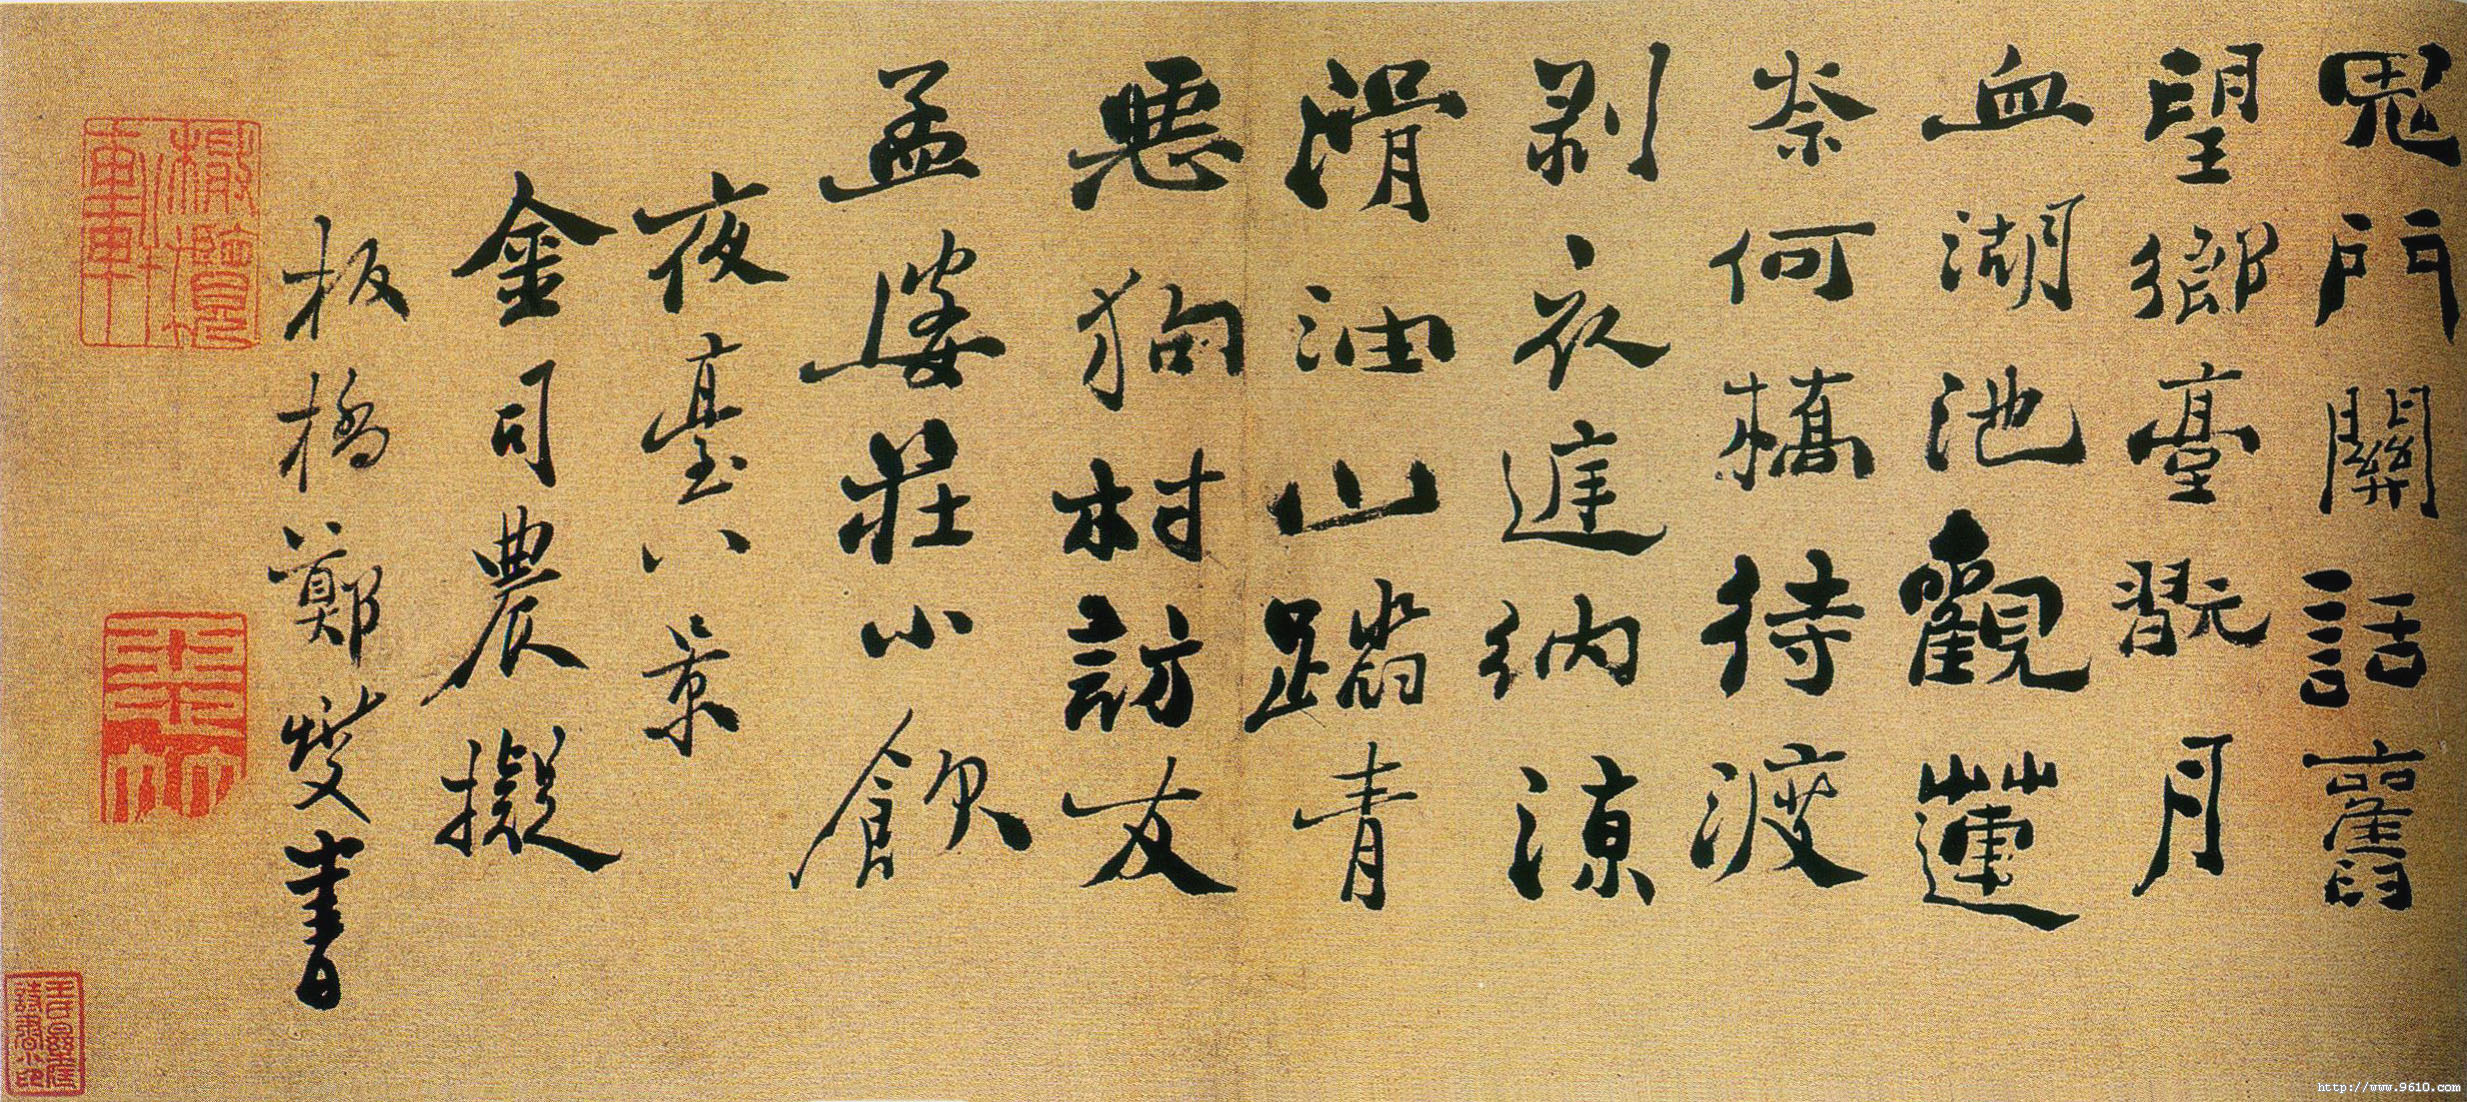 鬼門關話舊
望鄉臺翫月
血湖池觀蓮
柰何橋待渡
剥衣進納涼
滑油山踏青
惡狗村訪友
孟婆莊小飲
夜臺八景
金司農擬
板橋鄭燮書
http://www.9610.com